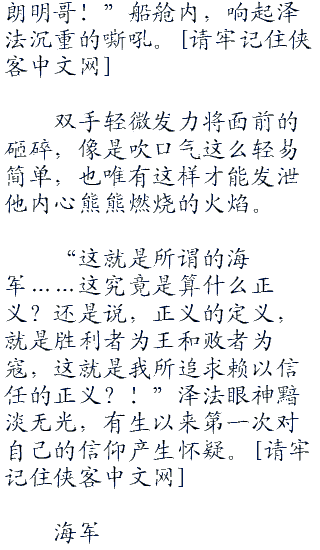 朗明哥！”船舱内，响起泽
法沉重的嘶吼。[请牢记住侠
客中文网]
双手轻微发力将面前的
砸碎，像是吹口气这么轻易
简单，也唯有这样才能发泄
他内心熊熊燃烧的火焰。
“这就是所谓的海
军……这究竟是算什么正
义？还是说，正义的定义，
就是胜利者为王和败者为
寇，这就是我所追求赖以信
任的正义？！”泽法眼神黯
淡无光，有生以来第一次对
自己的信仰产生怀疑。[请牢
记住侠客中文网]
海军